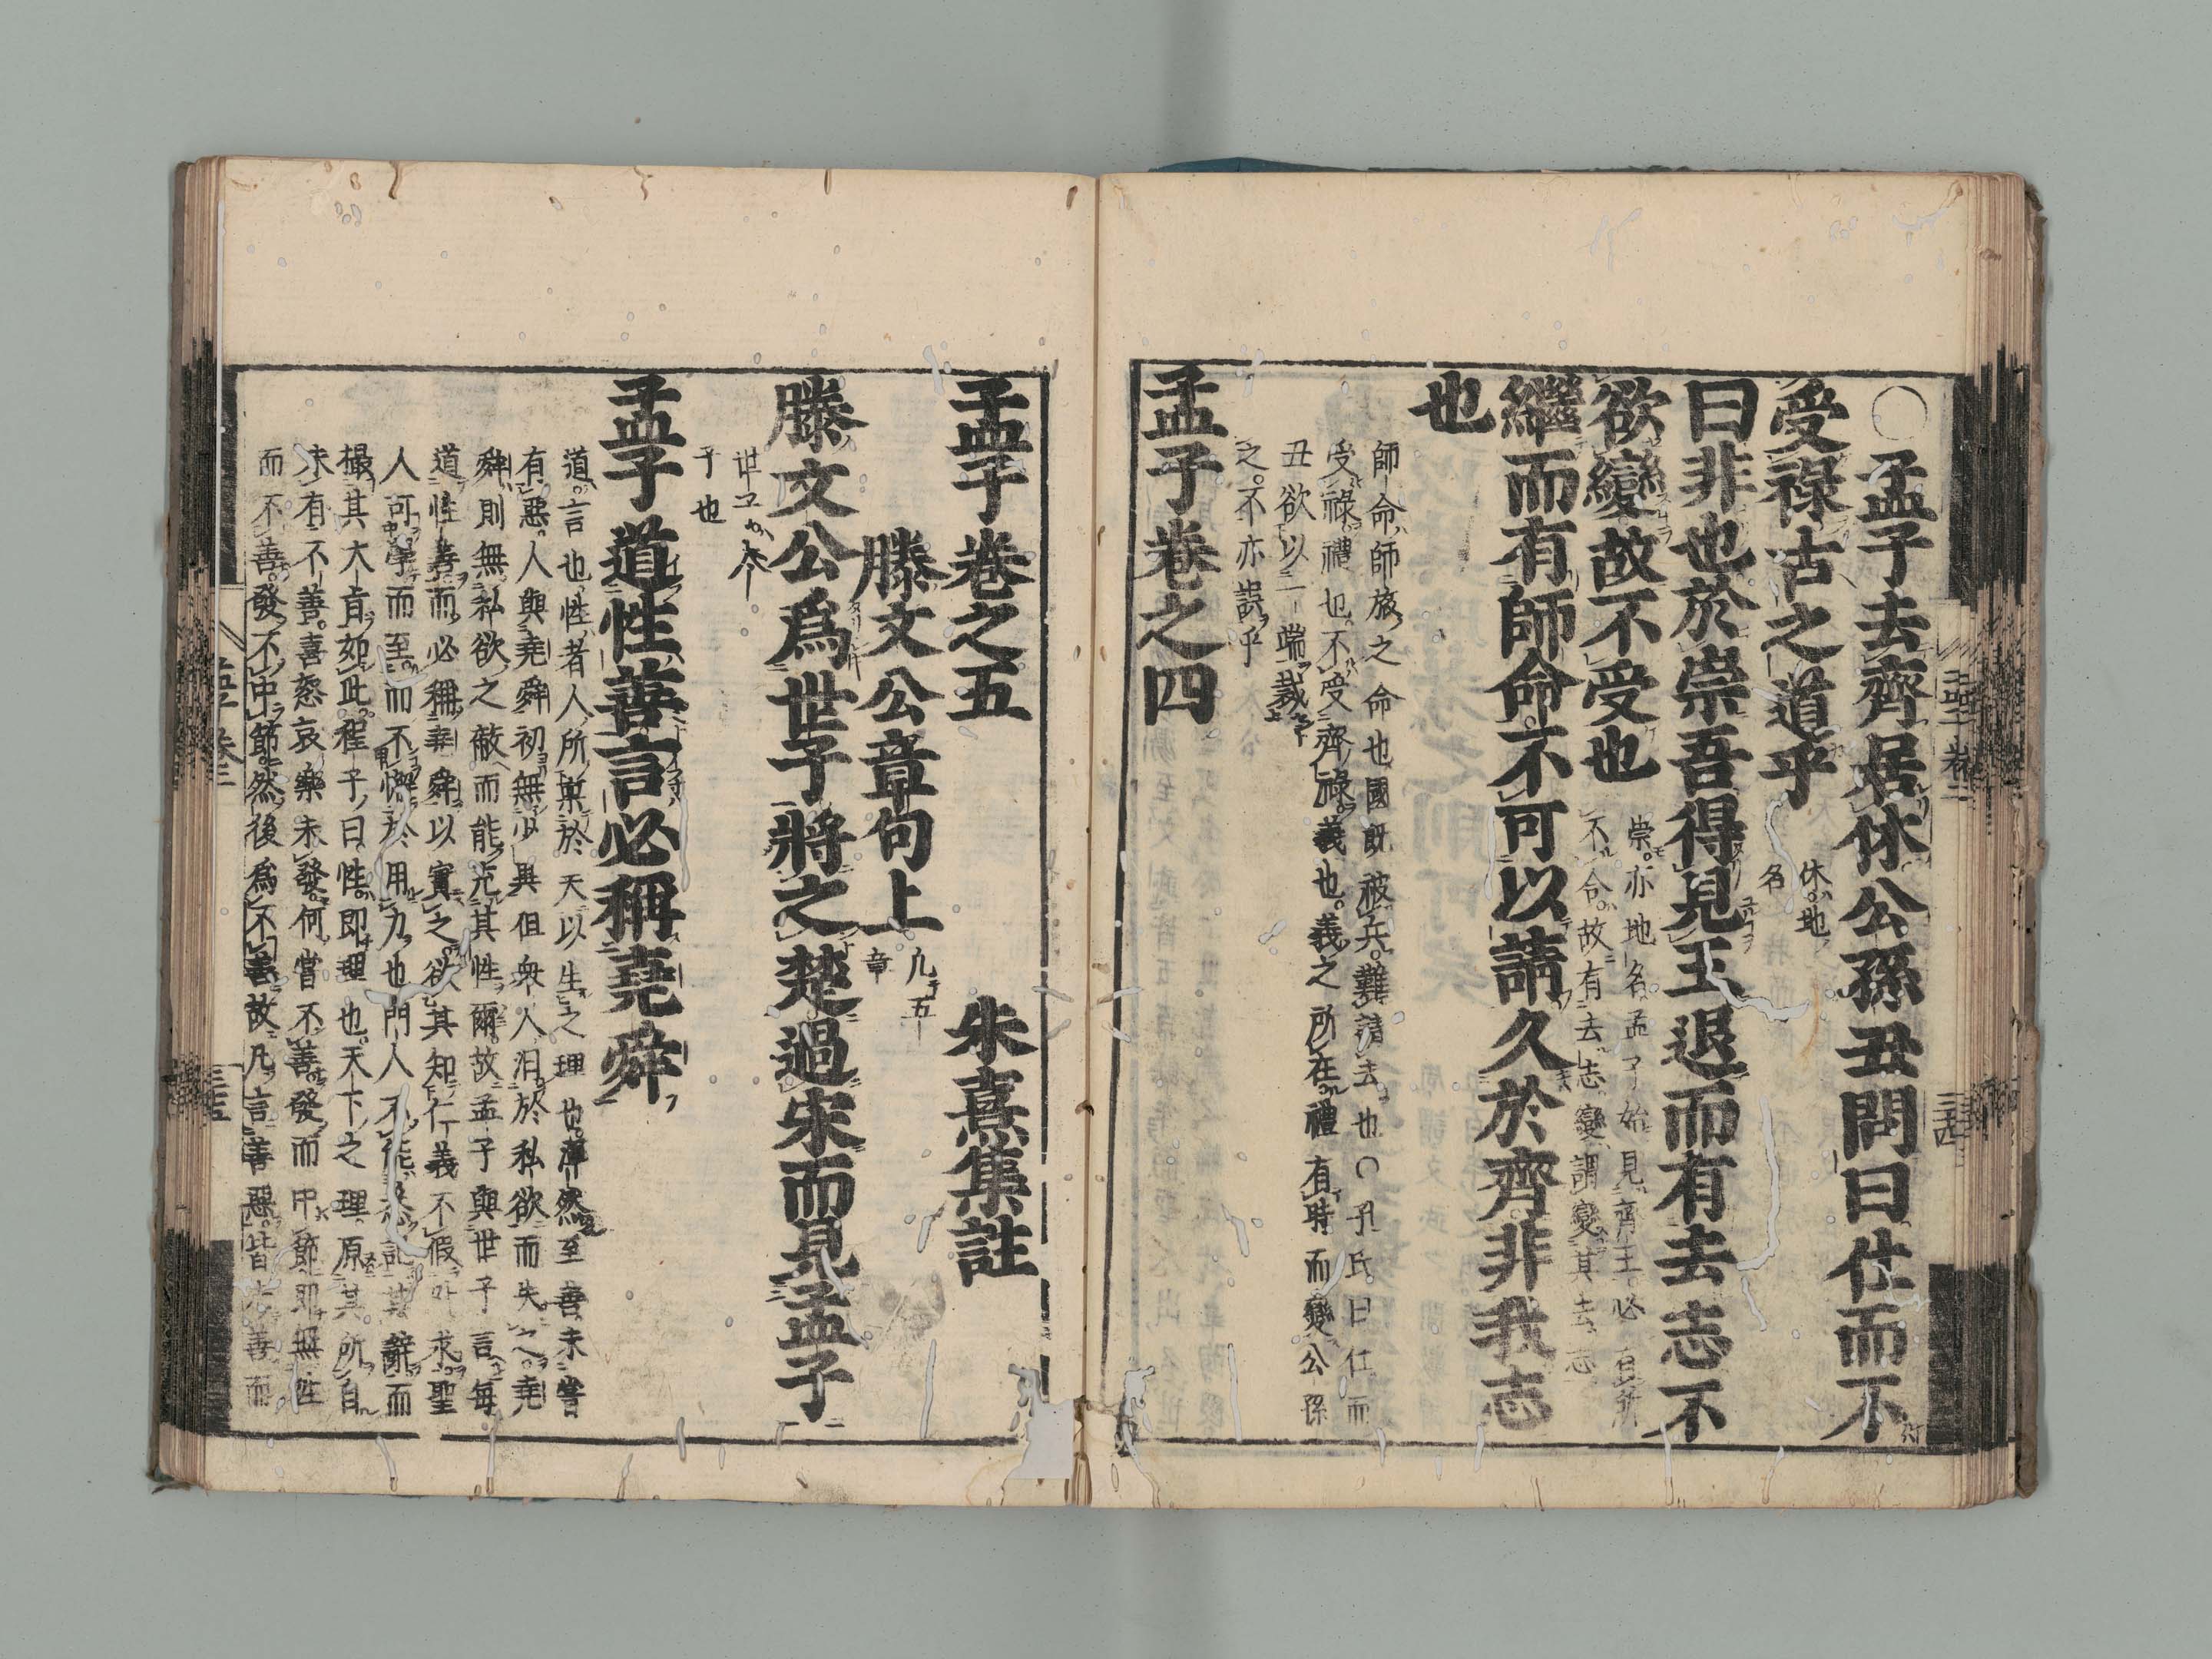 ○孟子去齊居休公孫丑問曰仕而不
受祿古之道乎
休地
名
曰非也於崇吾得見王退而有去志不
欲變故不受也
崇亦地名孟子始見齊王必有所
不合故有去志變謂變其去志
繼而有師命不可以請久於齊非我志
也
師命師旅之命也國旣被兵難請去也○孔氏曰仕而
受祿禮也不受齊祿義也義之所在禮有時而變公孫
丑欲以一端裁
之不亦誤乎
孟子卷之四
孟子卷之五
朱熹集註
滕文公章句上
凡五
章
滕文公爲世子將之楚過宋而見孟子
世子太
子也
孟子道性善言必稱堯舜
道言也性者人所稟於天以生之理也渾然至善未嘗
有惡人與堯舜初無少異但衆人汨於私欲而失之堯
舜則無私欲之蔽而能充其性爾故孟子與世子言每
道性善而必稱堯舜以實之欲其知仁義不假外求聖
人可學而至而不懈於用力也門人不能悉記其辭而
撮其大旨如此程子曰性即理也天下之理原其所自
未有不善喜怒哀樂未發何嘗不善發而中節即無往
而不善發不中節然後爲不善故凡言善惡皆先善而